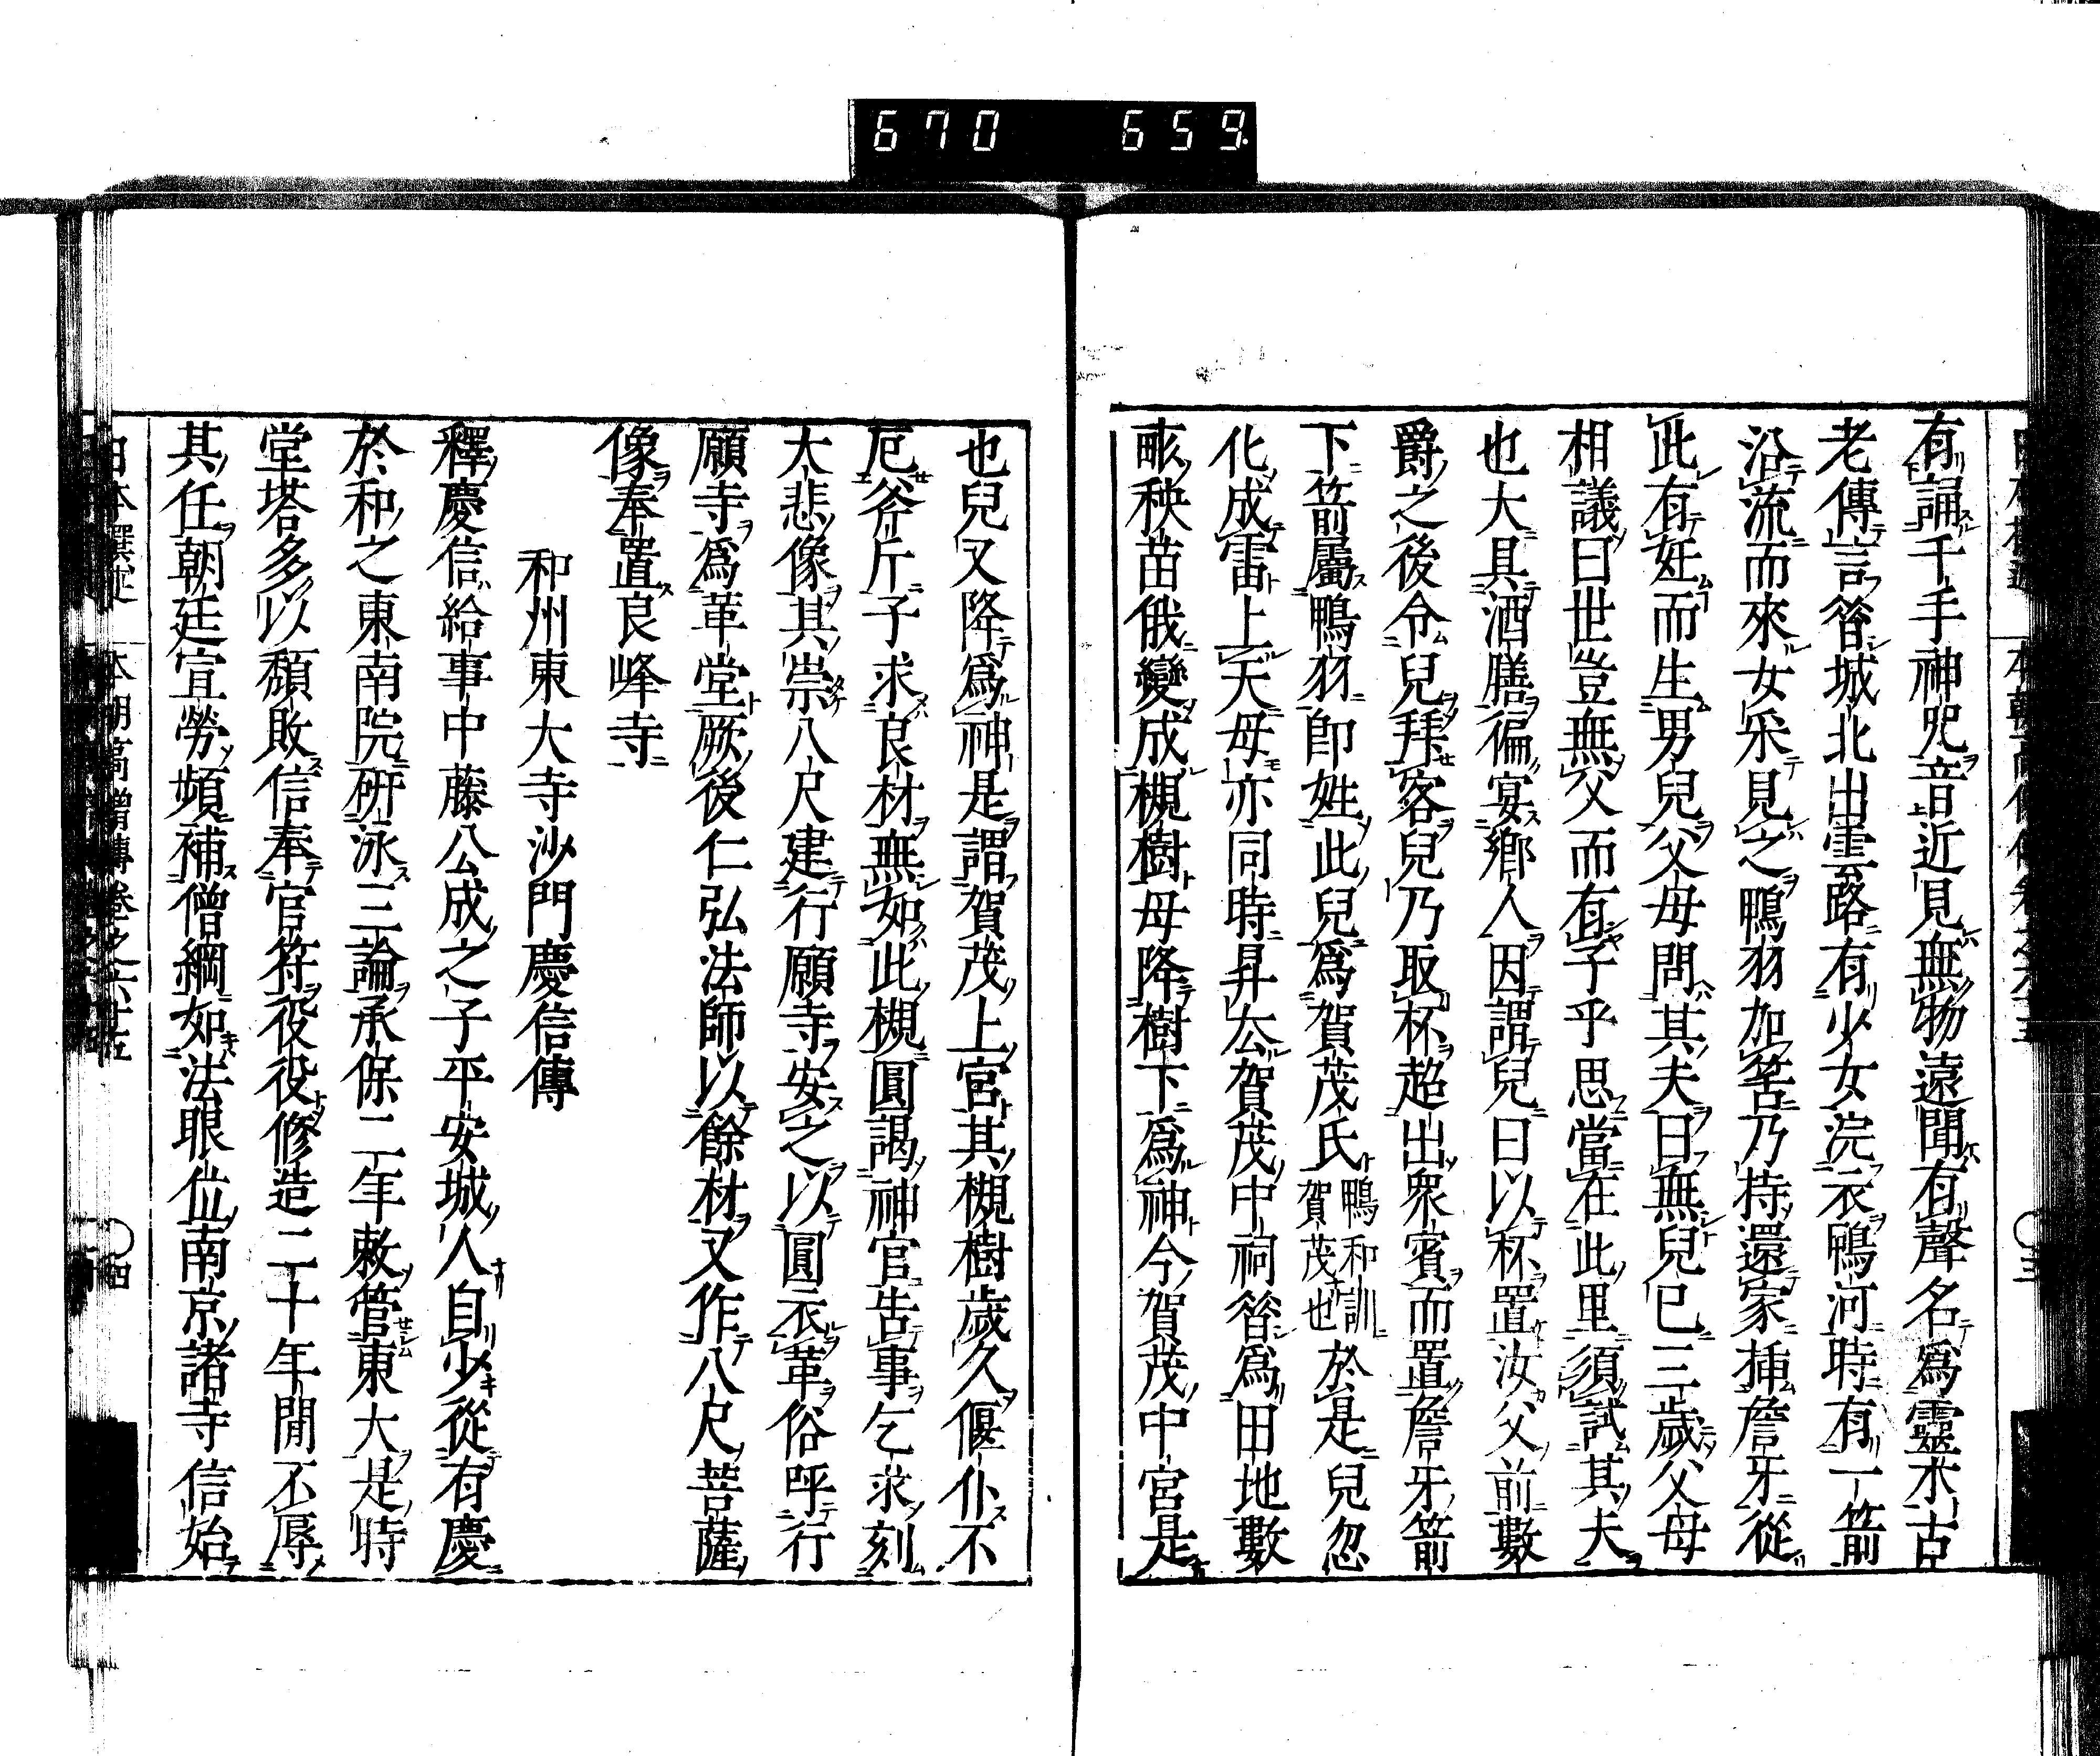 670 659
有誦千手神咒音近見無物遠聞有聲名爲靈木古
老傳言昝城北出雲路有少女浣衣鴨河時有一箭
沿流而來女采見之鴨羽加筈乃持還家挿詹牙從
此有妊而生男兒父母問其夫曰無兒已三歲父母
相議曰世豈無父而有子乎思當在此里須試其夫
也大具酒膳徧宴鄉人因謂兒曰以杯置汝父前數
爵之後令兒拜客兒乃取杯超出眾賓而置詹牙箭
下箭屬鴨羽卽姓此兒爲賀茂氏鴨和訓賀茂也於是兒忽
化成雷上天母亦同時昇去賀茂中祠昝爲田地數
畞秧苗俄變成槻樹母降樹下爲神今賀茂中宮是
也兒又降爲神是謂賀茂上宮其槻樹歲久偃仆不
厄斧斤子求良材無如此槻圓謁神官告事乞求刻
大悲像其崇八尺建行願寺安之以圓衣革俗呼行
願寺爲革堂厥後仁弘法師以餘材又作八尺菩薩
像奉置良峰寺
和州東大寺沙門慶信傳
釋慶信給事中藤公成之子平安城人自少從有慶
於和之東南院硏泳三論承保二年敕管東大是時
堂塔多以頹敗信奉官符役役修造二十年閒不辱
其任朝廷宣勞頻補僧綱如法眼位南京諸寺信始
本朝高僧傳卷之六十五
四